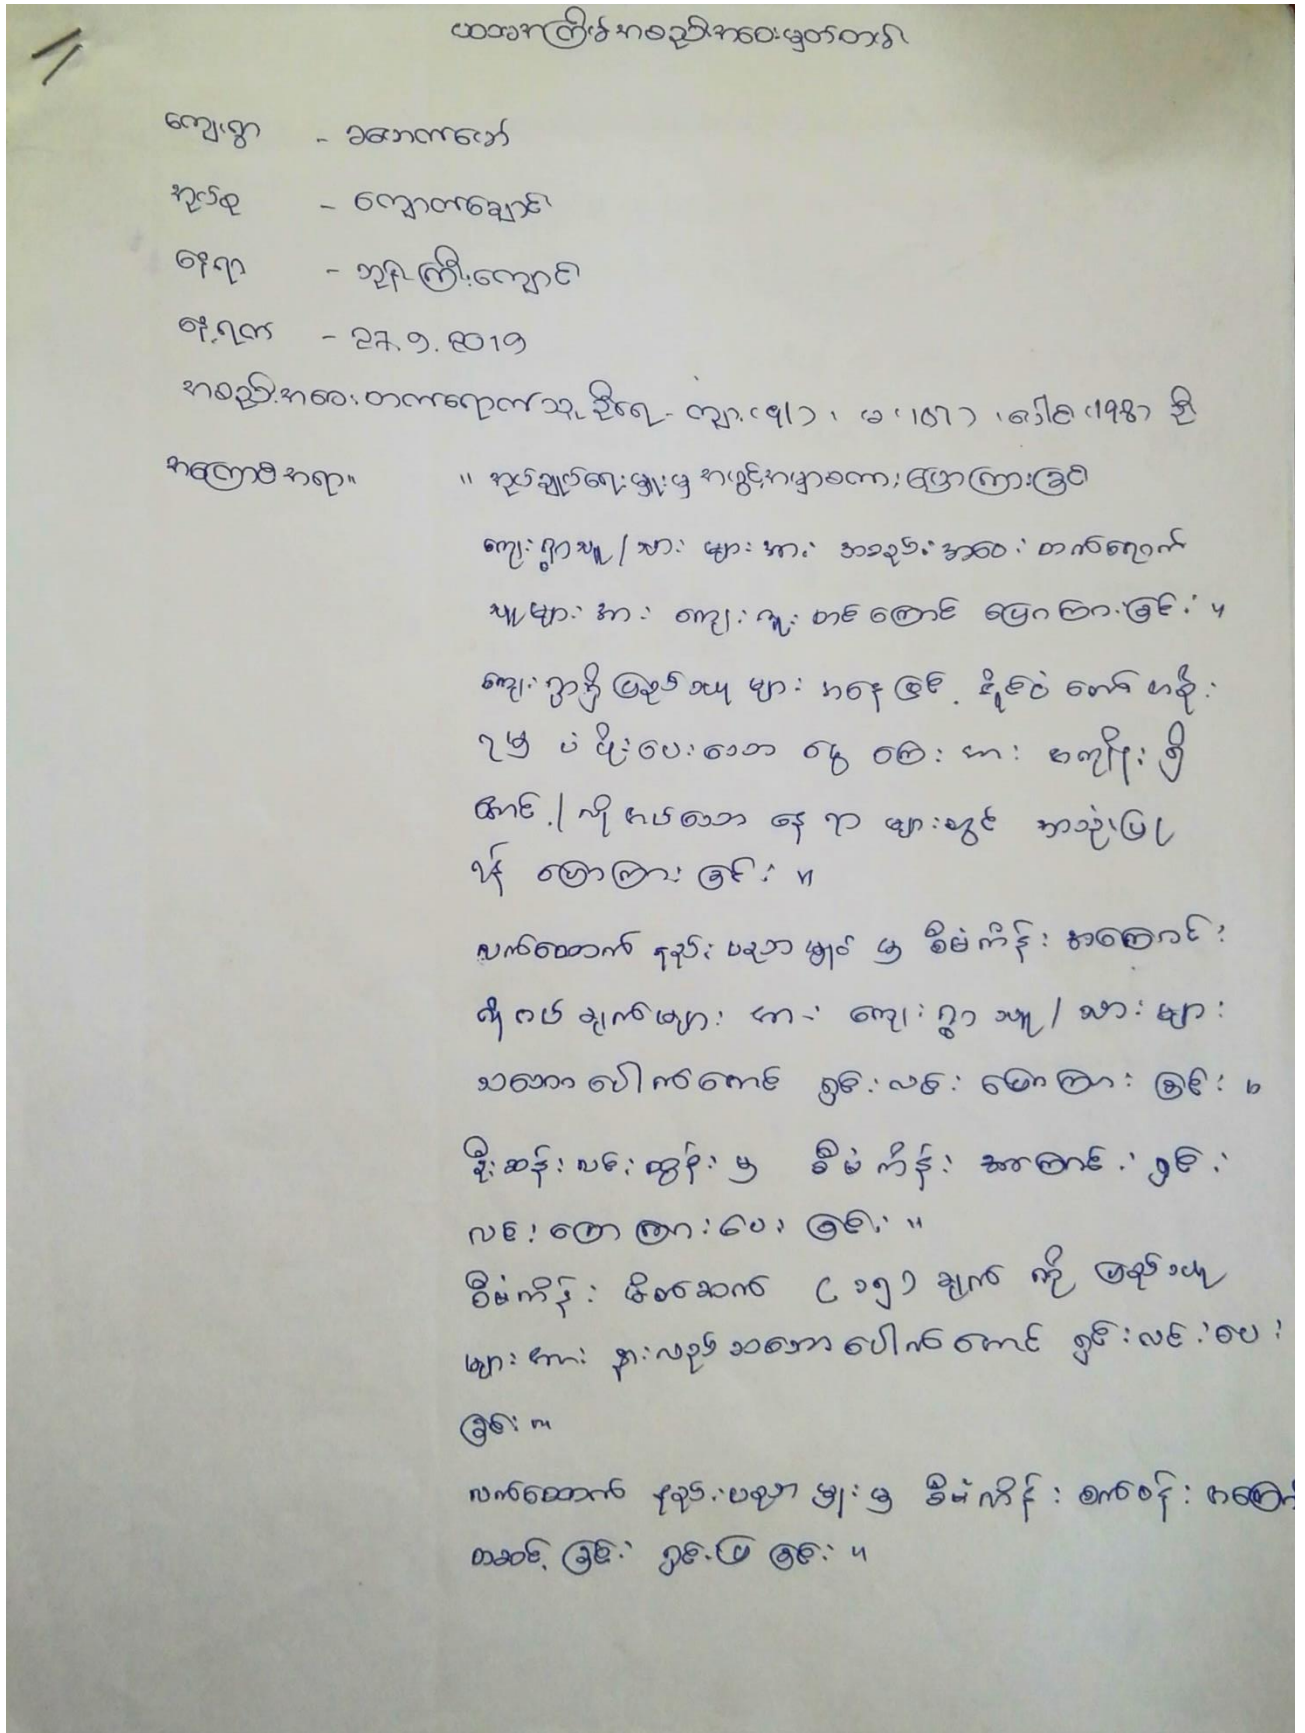 ပထမအကြိမ်အစည်းအဝေးမှတ်တမ်း
ကျေးရွာ - ခမောကဇော်
အုပ်စု - ကျောတချောင်း
နေရာ - ဘုန်းကြီးကျောင်း
နေ့ရက် - 27.9.2019
အစည်းအဝေးတက်ရောက်သူဦးရေ - ကျား (၅၂)၊ မ (၁၀၂)၊ ပေါင်း (၁၅၃) ဦး
အကြောင်းအရာ။ ။ အုပ်ချုပ်ရေးမှူးမှ အဖွင့်အမှာစကားပြောကြားခြင်း
ကျေးရွာသူ/သားများအား အစည်းအဝေးတက်ရောက်
သူများအား ကျေးဇူးတင်ကြောင်း ပြောကြားခြင်း။
ကျေးရွာရှိပြည်သူများအနေဖြင့် နိုင်ငံတော်အစိုး
ရမှ ပံ့ပိုးပေးသော ငွေကြေးအား အကျိုးရှိ
အောင်/လိုအပ်သောနေရာများတွင် အသုံးပြု
ရန် ပြောကြားခြင်း။
လက်ထောက်နည်းပညာမှူးမှ စီမံကိန်းအကြောင်း
လိုအပ်ချက်များအား ကျေးရွာသူ/သားများ
သဘောပေါက်အောင် ရှင်းလင်းပြောကြားခြင်း။
ဦးဆန်းလင်းထွန်းမှ စီမံကိန်းအကြောင်းရှင်း
လင်းပြောကြားပေးခြင်း။
စီမံကိန်းဖိတ်ဆက် (၁၅) ချက်ကို ပြည်သူ
များအား နားလည်သဘောပေါက်အောင် ရှင်းလင်းပေး
ခြင်း။
လက်ထောက်နည်းပညာမှူးမှ စီမံကိန်းစက်ဝန်း
တဆင့်ခြင်း ရှင်းပြခြင်း။